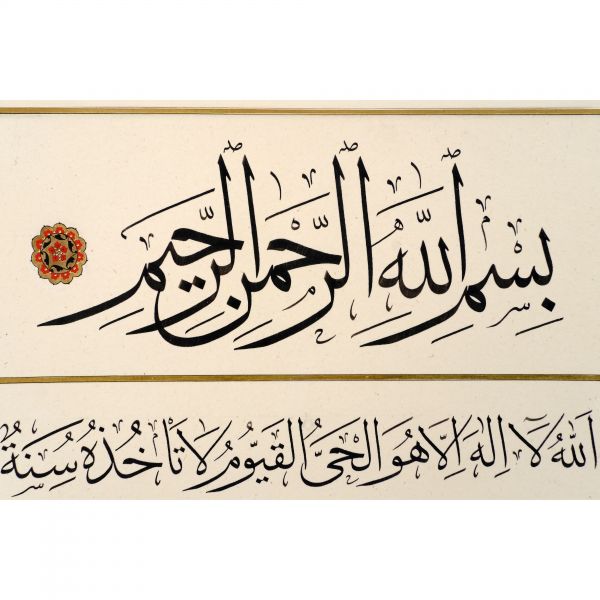 بِسْمِ اللّٰهِ الرَّحْمٰنِ الرَّحِيمِ
اَللّٰهُ لَٓا اِلٰهَ اِلَّا هُوَ الْحَىُّ الْقَيُّومُ لَا تَاْخُذُهُ سِنَةٌ